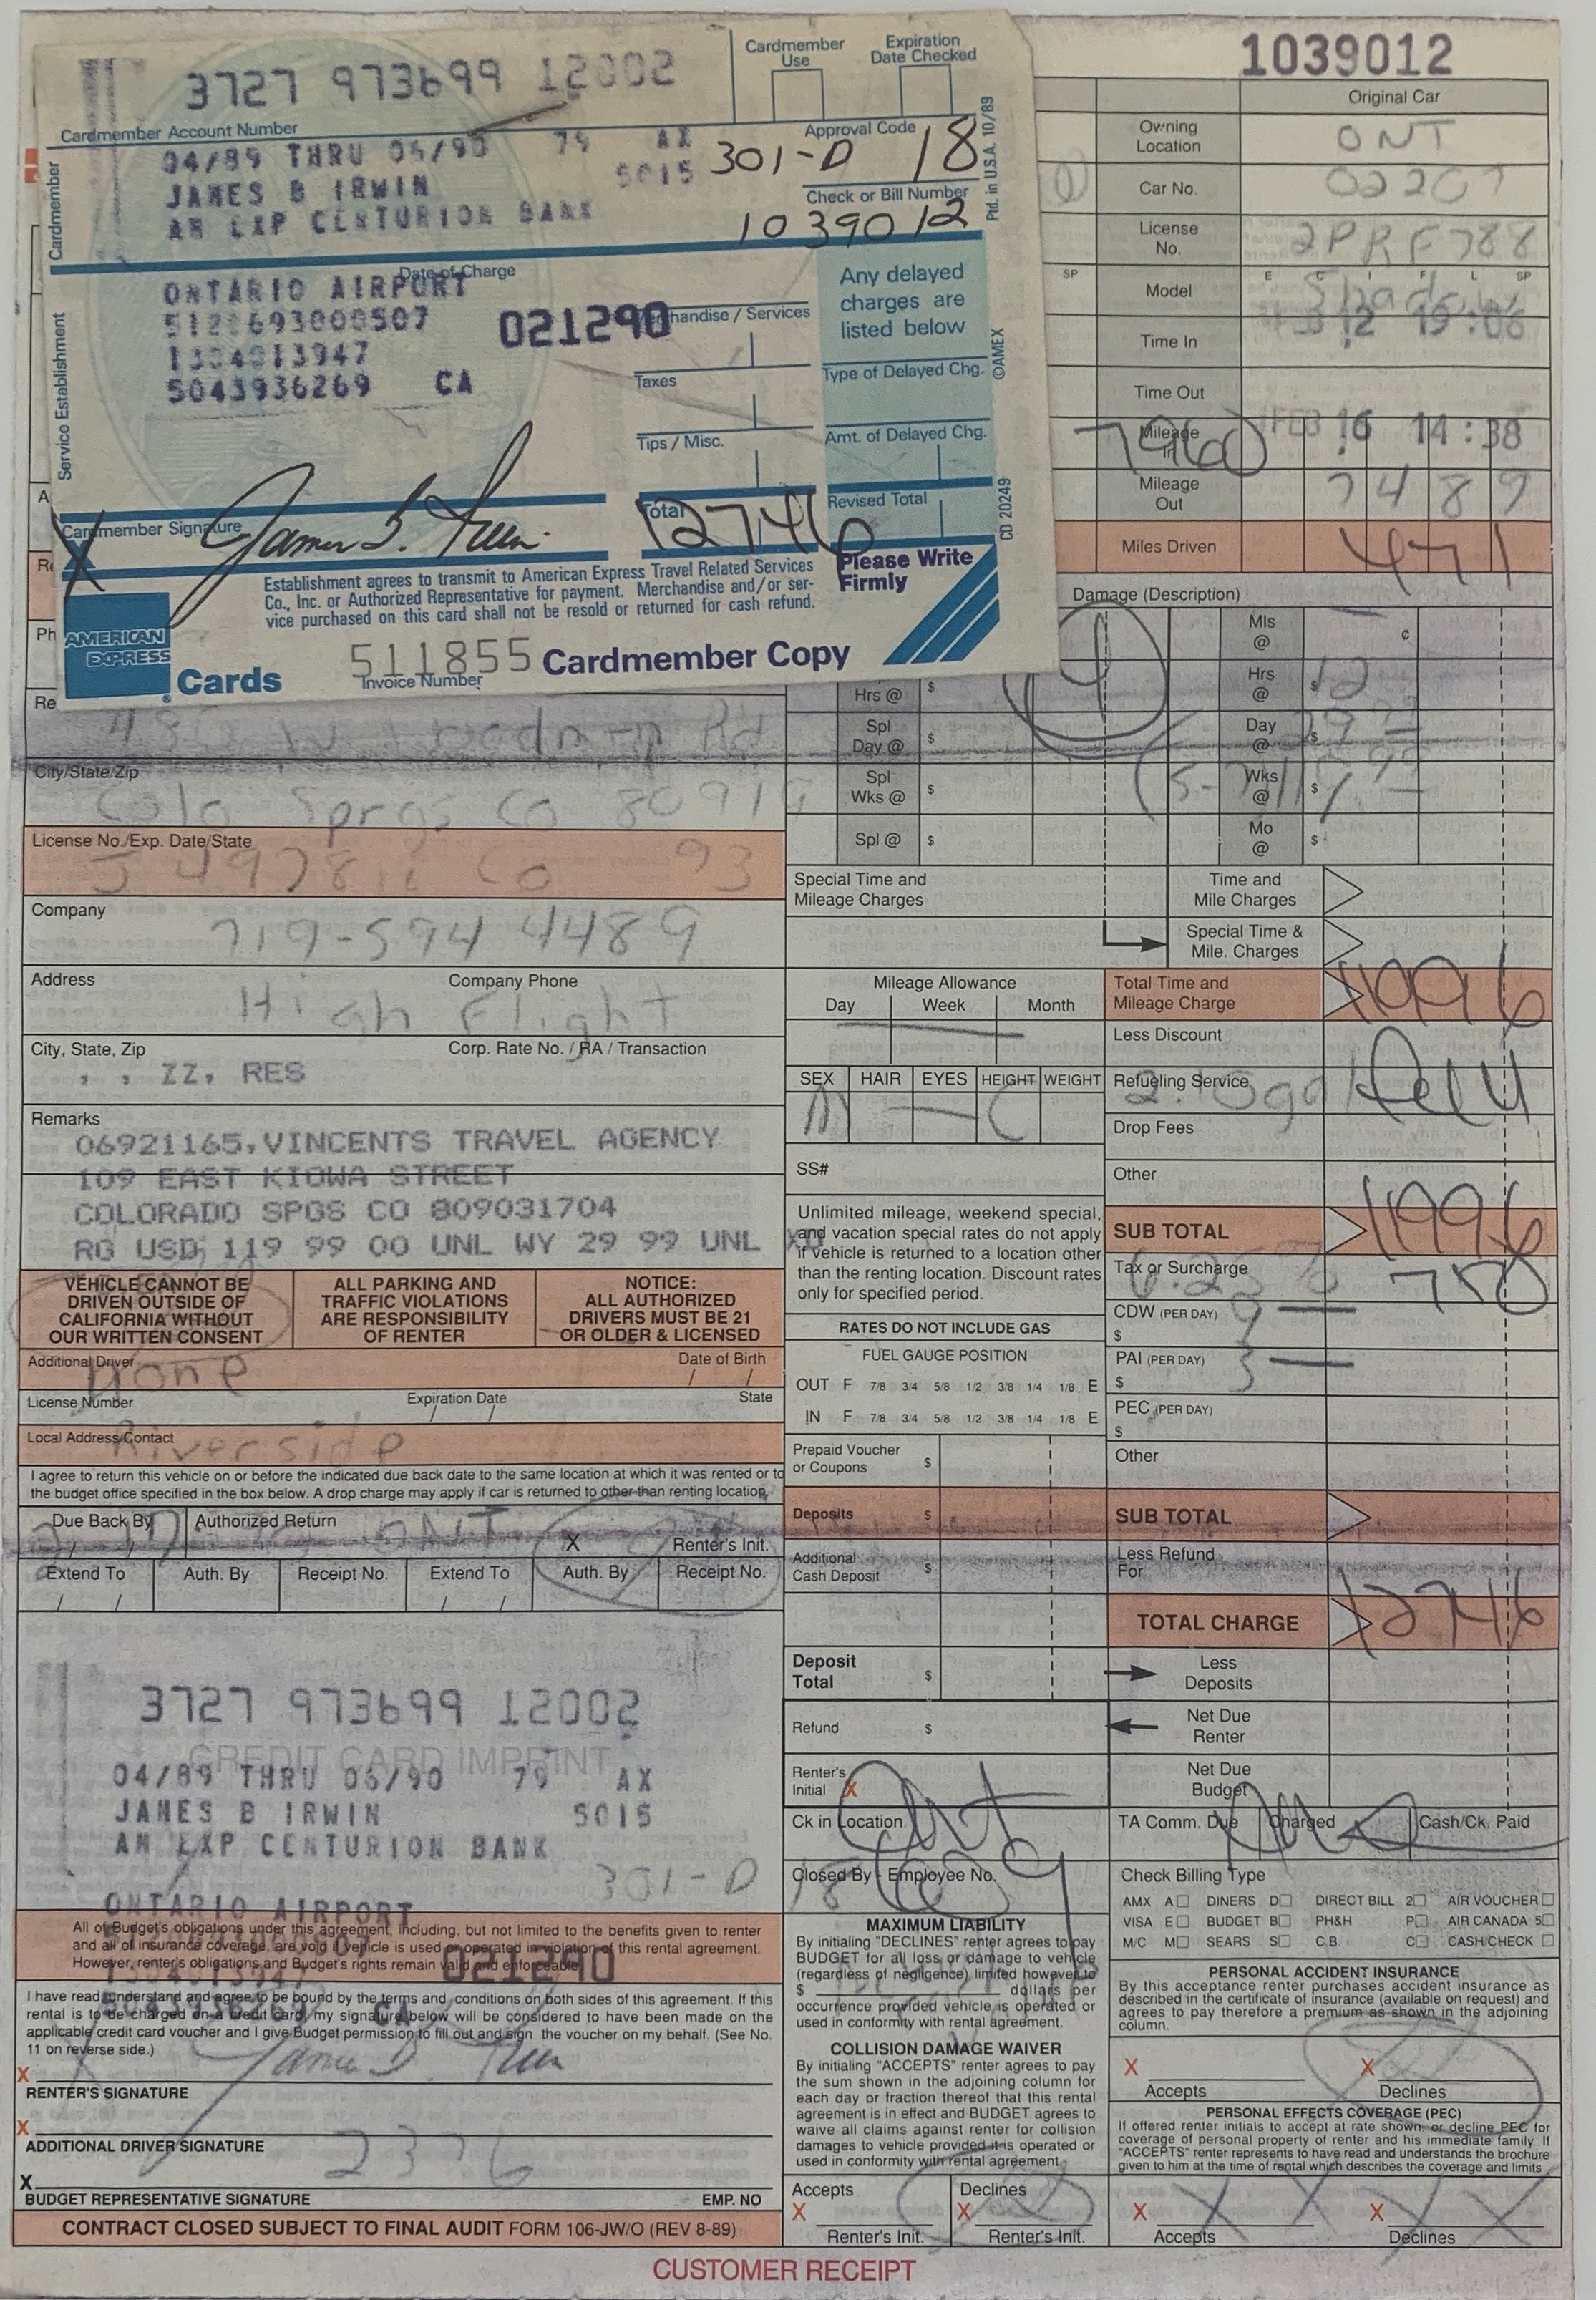 3727 973699 12002
Cardmember Use
Expiration Date Checked
Cardmember Account Number
04/89 THRU 06/90 79 AX
Approval Code
301-D 18
JAMES B IRWIN 5015
Check or Bill Number
AM EXP CENTURION BANK
1039012
Cardmember
Ptd. in U.S.A. 10/89
Date of Charge
ONTARIO AIRPORT
5043936269 CA
021290
Service Establishment
Merchandise / Services
Taxes
Tips / Misc.
Total
12746
Any delayed
charges are
listed below
Type of Delayed Chg.
Amt. of Delayed Chg.
Revised Total
©AMEX
CD 20249
Cardmember Signature
X James B. Irwin
Establishment agrees to transmit to American Express Travel Related Services
Co., Inc. or Authorized Representative for payment. Merchandise and/or ser-
vice purchased on this card shall not be resold or returned for cash refund.
Please Write
Firmly
AMERICAN
EXPRESS
® Cards
511855
Invoice Number
Cardmember Copy
1039012
Original Car
Owning Location ONT
Car No. 02207
License No. 2PRF788
SP E C I F L SP
Model Shadow
Time In FEB 12 19:06
Time Out
FEB 16 14:38
Mileage In 7960
Mileage Out 7489
Miles Driven 471
Damage (Description)
Mls @ ¢
Hrs @ $
Hrs @ $ 12
Spl Day @ $
Day @ $ 29 99
Spl Wks @ $
Wks @ $
Spl @ $
Mo @ $
Woodmen Rd
City/State/Zip
Colo Sprgs Co 80919
License No./Exp. Date/State
Co 93
Company
719-594 4489
Address Company Phone
High Flight
City, State, Zip Corp. Rate No. / RA / Transaction
, , ZZ, RES
Remarks
06921165,VINCENTS TRAVEL AGENCY
109 EAST KIOWA STREET
COLORADO SPGS CO 809031704
RG USD, 119 99 00 UNL WY 29 99 UNL XD
VEHICLE CANNOT BE
DRIVEN OUTSIDE OF
CALIFORNIA WITHOUT
OUR WRITTEN CONSENT
ALL PARKING AND
TRAFFIC VIOLATIONS
ARE RESPONSIBILITY
OF RENTER
NOTICE:
ALL AUTHORIZED
DRIVERS MUST BE 21
OR OLDER & LICENSED
Additional Driver Date of Birth
none
License Number Expiration Date State
Local Address/Contact
Riverside
I agree to return this vehicle on or before the indicated due back date to the same location at which it was rented or to
the budget office specified in the box below. A drop charge may apply if car is returned to other than renting location.
Due Back By Authorized Return X Renter's Init.
ONT
Extend To Auth. By Receipt No. Extend To Auth. By Receipt No.
Special Time and
Mileage Charges
Time and
Mile Charges
Special Time &
Mile. Charges
Mileage Allowance
Day Week Month
Total Time and
Mileage Charge
11996
Less Discount
SEX HAIR EYES HEIGHT WEIGHT
M
Refueling Service
Drop Fees
SS#
Other
Unlimited mileage, weekend special,
and vacation special rates do not apply
if vehicle is returned to a location other
than the renting location. Discount rates
only for specified period.
SUB TOTAL 11996
Tax or Surcharge
6.25% 750
CDW (PER DAY)
$ 9
RATES DO NOT INCLUDE GAS
FUEL GAUGE POSITION
OUT F 7/8 3/4 5/8 1/2 3/8 1/4 1/8 E
IN F 7/8 3/4 5/8 1/2 3/8 1/4 1/8 E
PAI (PER DAY)
$ 3
PEC (PER DAY)
$
Prepaid Voucher
or Coupons $
Other
Deposits $
SUB TOTAL
Additional
Cash Deposit $
Less Refund
For
TOTAL CHARGE 12746
Deposit
Total $
Less
Deposits
Refund $
Net Due
Renter
Renter's
Initial X
Net Due
Budget
Ck in Location
Ont
TA Comm. Due Charged Cash/Ck. Paid
Closed By - Employee No.
Check Billing Type
AMX A DINERS D DIRECT BILL 2 AIR VOUCHER
VISA E BUDGET B PH&H P AIR CANADA 5
M/C M SEARS S C.B. C CASH/CHECK
3727 973699 12002
CREDIT CARD IMPRINT
04/89 THRU 06/90 79 AX
JAMES B IRWIN 5015
AM EXP CENTURION BANK
301-D
ONTARIO AIRPORT
021290
CA
All of Budget's obligations under this agreement, including, but not limited to the benefits given to renter
and all of insurance coverage, are void if vehicle is used or operated in violation of this rental agreement.
However, renter's obligations and Budget's rights remain valid and enforceable.
I have read, understand and agree to be bound by the terms and conditions on both sides of this agreement. If this
rental is to be charged on a credit card, my signature below will be considered to have been made on the
applicable credit card voucher and I give Budget permission to fill out and sign the voucher on my behalf. (See No.
11 on reverse side.)
X James B. Irwin
RENTER'S SIGNATURE
X
ADDITIONAL DRIVER SIGNATURE
2376
X
BUDGET REPRESENTATIVE SIGNATURE EMP. NO
CONTRACT CLOSED SUBJECT TO FINAL AUDIT FORM 106-JW/O (REV 8-89)
MAXIMUM LIABILITY
By initialing "DECLINES" renter agrees to pay
BUDGET for all loss or damage to vehicle
(regardless of negligence) limited however to
$ dollars per
occurrence provided vehicle is operated or
used in conformity with rental agreement.
COLLISION DAMAGE WAIVER
By initialing "ACCEPTS" renter agrees to pay
the sum shown in the adjoining column for
each day or fraction thereof that this rental
agreement is in effect and BUDGET agrees to
waive all claims against renter for collision
damages to vehicle provided it is operated or
used in conformity with rental agreement.
Accepts Declines
X X
Renter's Init. Renter's Init.
PERSONAL ACCIDENT INSURANCE
By this acceptance renter purchases accident insurance as
described in the certificate of insurance (available on request) and
agrees to pay therefore a premium as shown in the adjoining
column.
X X
Accepts Declines
PERSONAL EFFECTS COVERAGE (PEC)
If offered renter initials to accept at rate shown, or decline PEC for
coverage of personal property of renter and his immediate family. If
"ACCEPTS" renter represents to have read and understands the brochure
given to him at the time of rental which describes the coverage and limits
X X X X X X
Accepts Declines
CUSTOMER RECEIPT